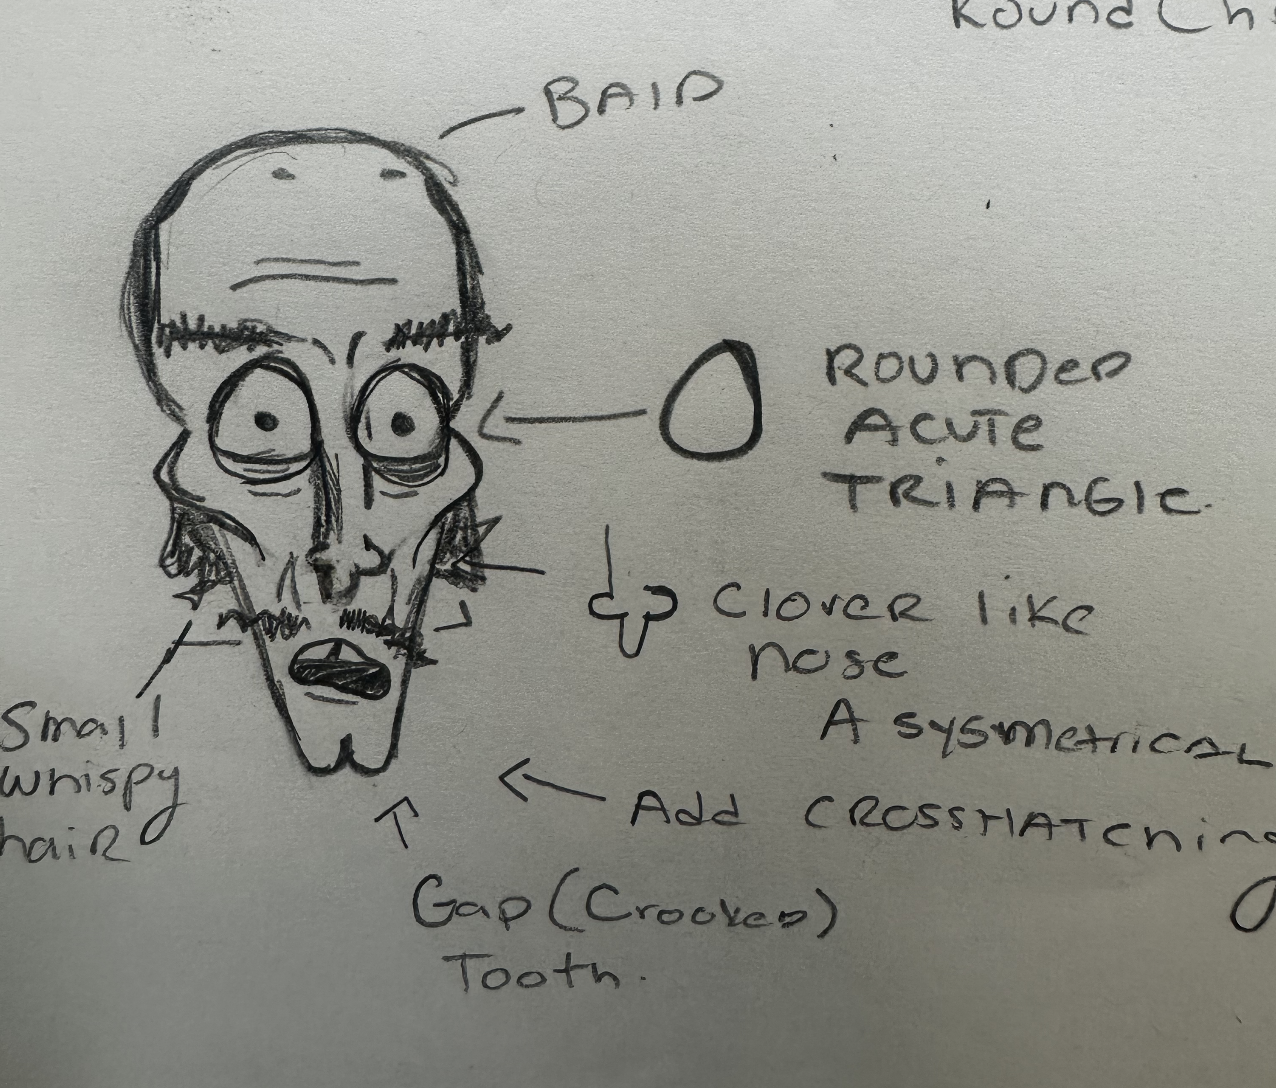 Round Ch
BAlD
ROUNDeD
ACUTe
TRiANGle.
Clover like
nose
A sysmetrical
Small
whispy
haiR
Add CROSSHATChening
Gap (Crooked)
Tooth.